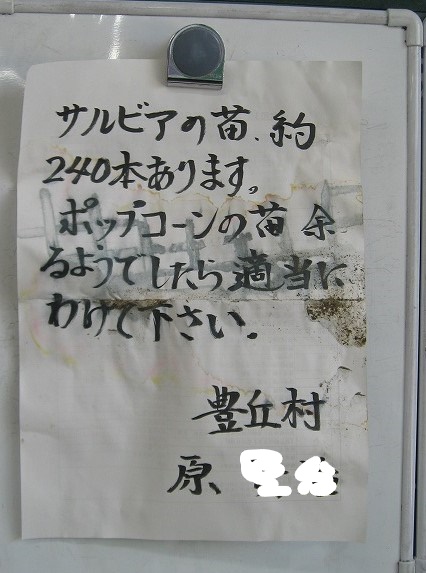 サルビアの苗、約
240本あります。
ポップコーンの苗 余
るようでしたら適当に
わけて下さい。
豊丘村
原